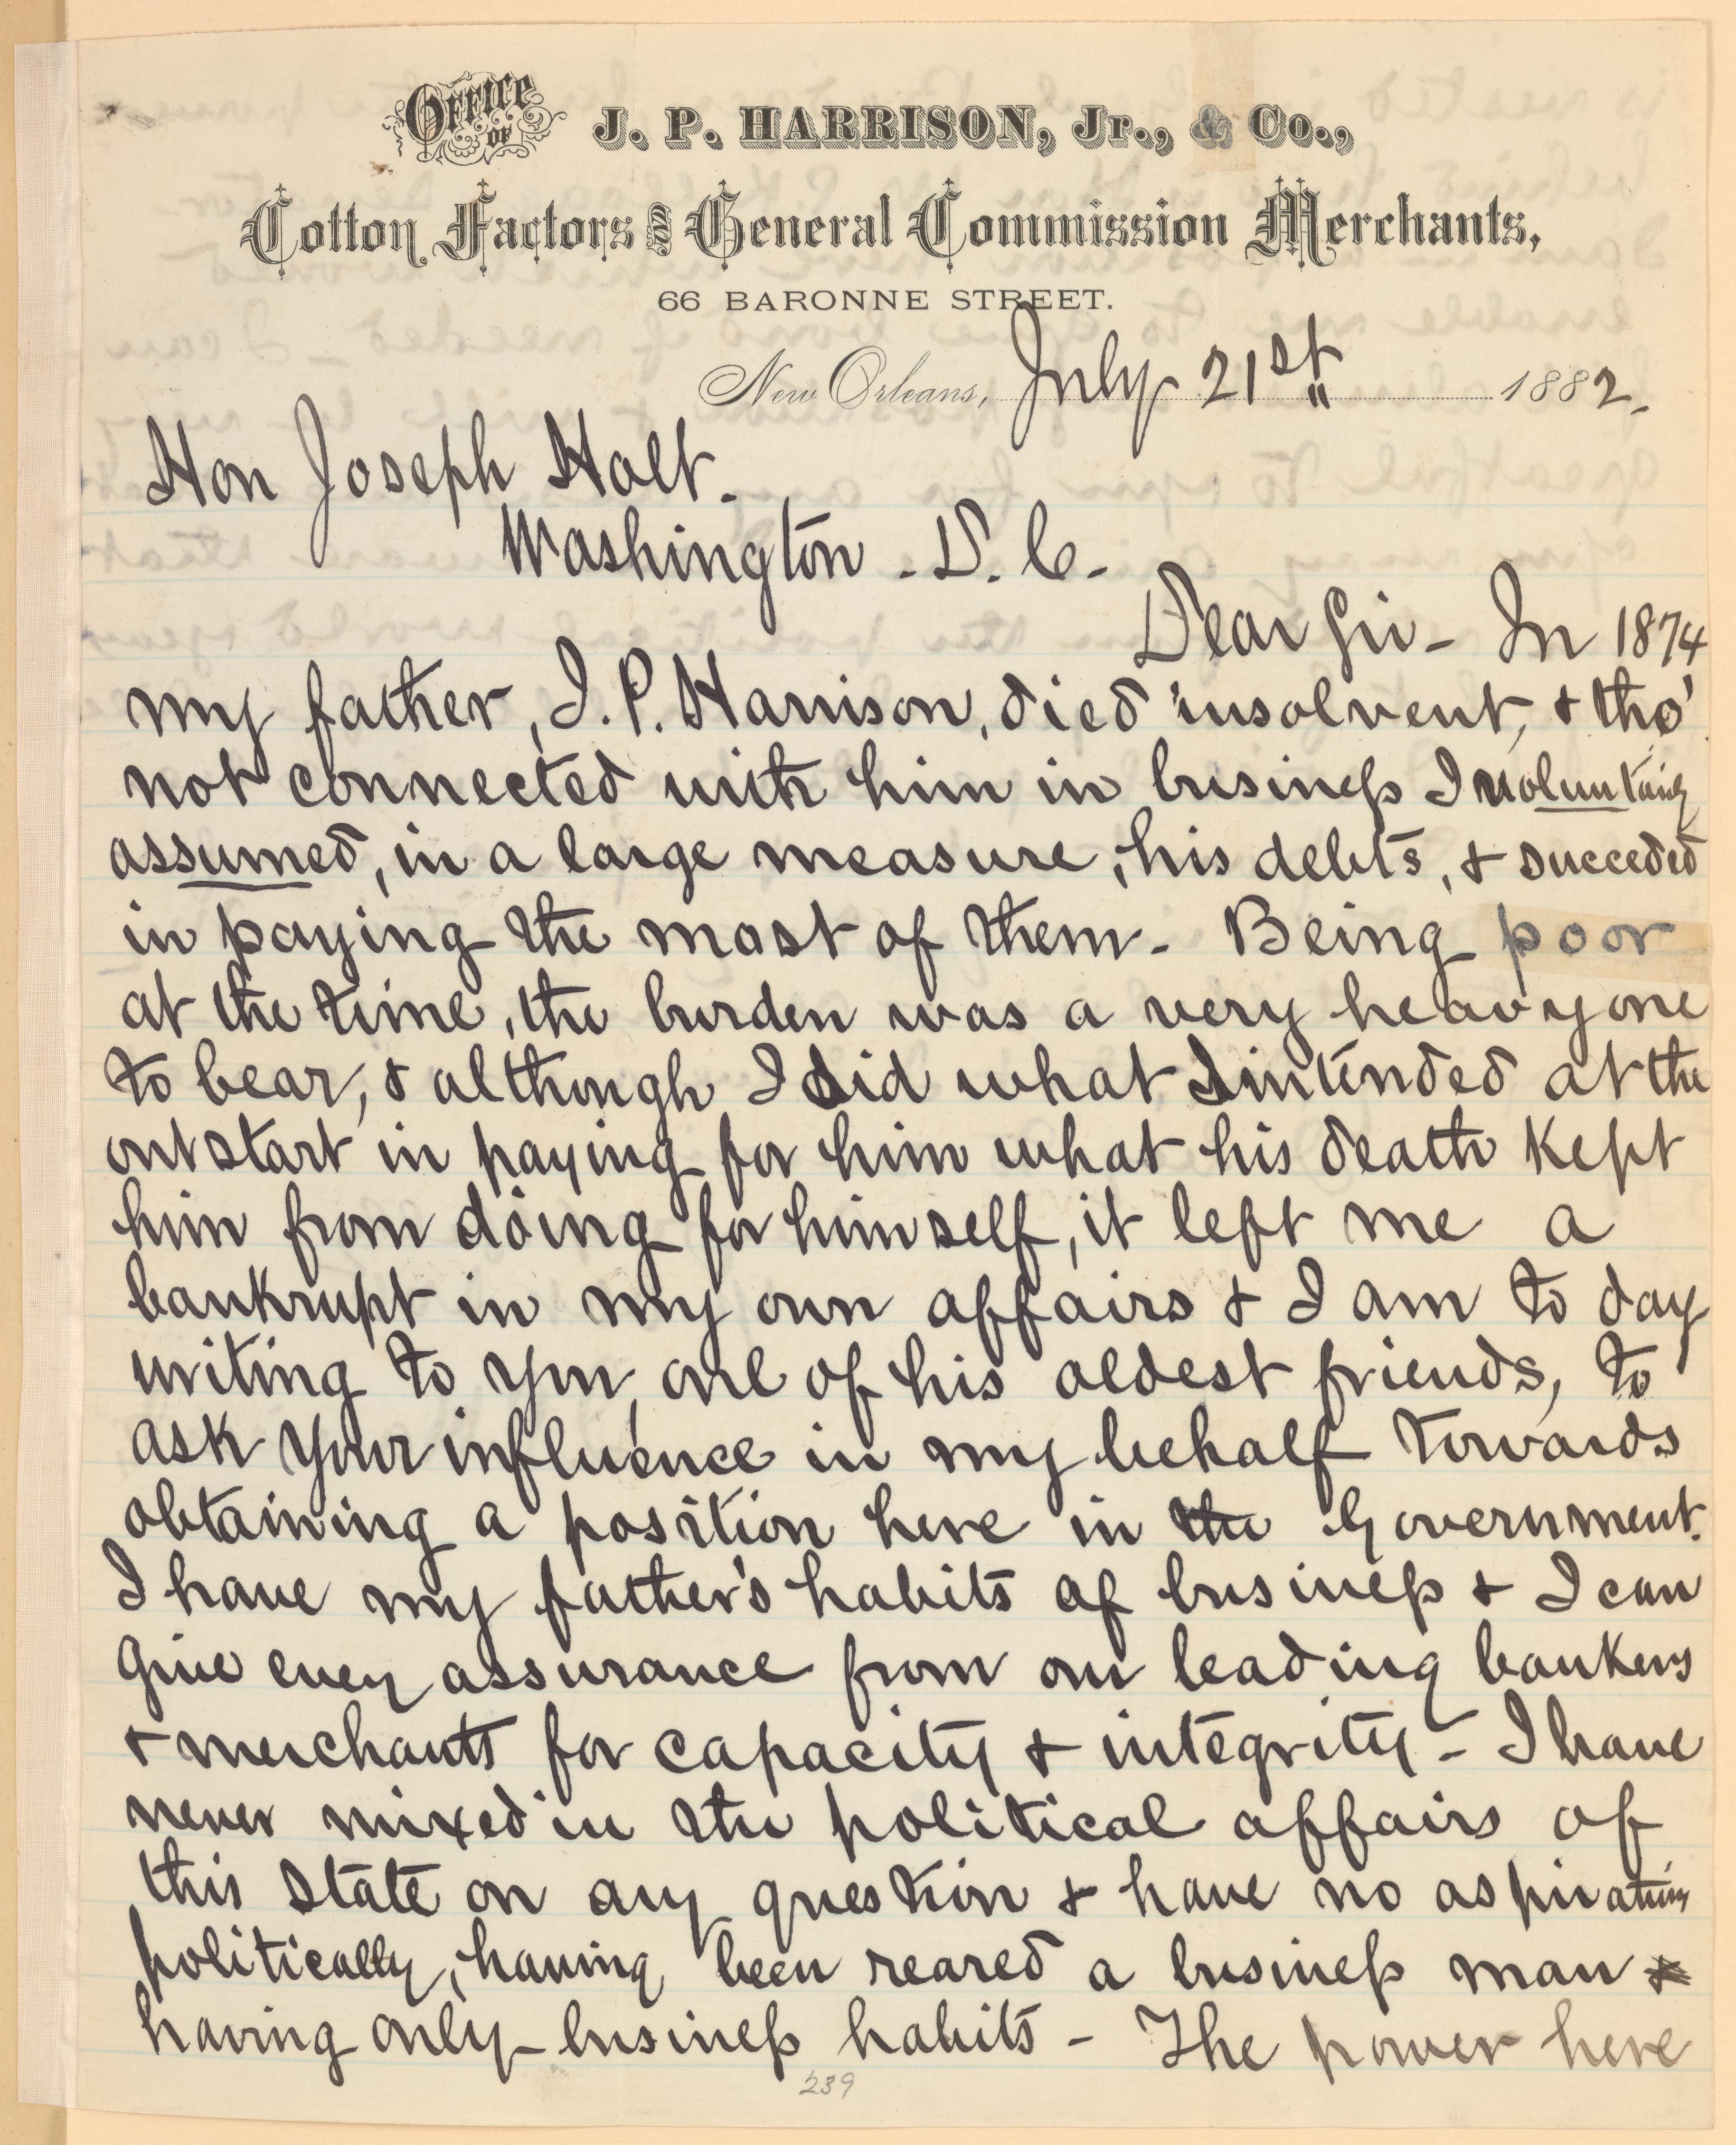 Office of J. P. HARRISON, Jr., & Co.,
Cotton Factors and General Commission Merchants,
66 BARONNE STREET.
New Orleans, July 21st 1882.
Hon Joseph Holt.
Washington - D. C. -
Dear Sir - In 1874
my father, J. P. Harrison, died insolvent, & tho'
not connected with him in business I voluntarily
assumed, in a large measure, his debts, & succeded
in paying the most of them - Being poor
at the time, the burden was a very heavy one
to bear, & although I did what I intended at the
outstart in paying for him what his death kept
him from doing for himself, it left me a
bankrupt in my own affairs & I am to day
writing to you, one of his oldest friends, to
ask your influence in my behalf towards
obtaining a position here in the Government.
I have my father's habits of business & I can
give every assurance from our leading bankers
& merchants for capacity & integrity - I have
never mixed in the political affairs of
this State on any question & have no aspirations
politically, having been reared a business man &
having only business habits - The power here
239